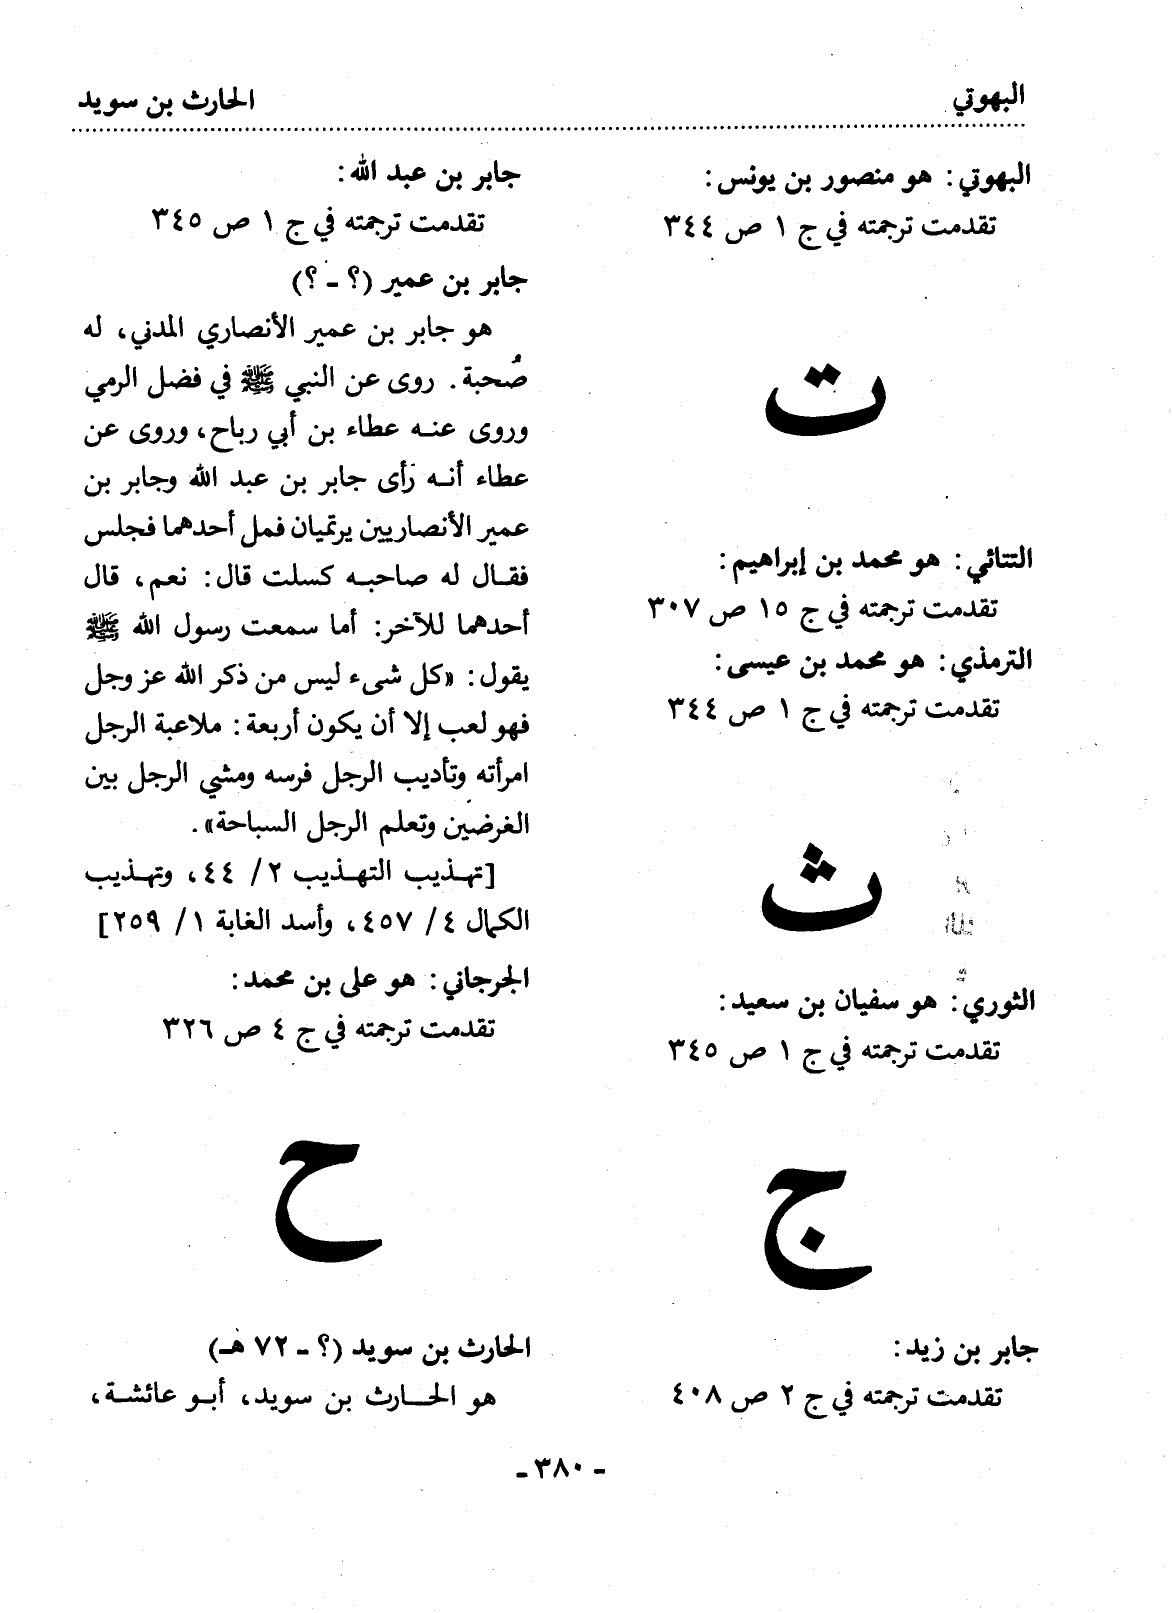 البهوتي
الحارث بن سويد
البهوتي: هو منصور بن يونس:
تقدمت ترجمته في ج ١ ص ٣٤٤
ت
التتائي: هو محمد بن إبراهيم:
تقدمت ترجمته في ج ١٥ ص ٣٠٧
الترمذي: هو محمد بن عيسى:
تقدمت ترجمته في ج ١ ص ٣٤٤
ث
الثوري: هو سفيان بن سعيد:
تقدمت ترجمته في ج ١ ص ٣٤٥
ج
جابر بن زيد:
تقدمت ترجمته في ج ٢ ص ٤٠٨
جابر بن عبد الله:
تقدمت ترجمته في ج ١ ص ٣٤٥
جابر بن عمير (؟ - ؟)
هو جابر بن عمير الأنصاري المدني، له
صُحبة. روى عن النبي ﷺ في فضل الرمي
وروى عنه عطاء بن أبي رباح، وروى عن
عطاء أنه رأى جابر بن عبد الله وجابر بن
عمير الأنصاريين يرتميان فمل أحدهما فجلس
فقال له صاحبه كسلت قال: نعم، قال
أحدهما للآخر: أما سمعت رسول الله ﷺ
يقول: «كل شىء ليس من ذكر الله عز وجل
فهو لعب إلا أن يكون أربعة: ملاعبة الرجل
امرأته وتأديب الرجل فرسه ومشي الرجل بين
الغرضين وتعلم الرجل السباحة».
[تهذيب التهذيب ٢/ ٤٤، وتهذيب
الكمال ٤/ ٤٥٧، وأسد الغابة ١/ ٢٥٩]
الجرجاني: هو على بن محمد:
تقدمت ترجمته في ج ٤ ص ٣٢٦
ح
الحارث بن سويد (؟ - ٧٢ هـ)
هو الحارث بن سويد، أبو عائشة،
- ٣٨٠ -